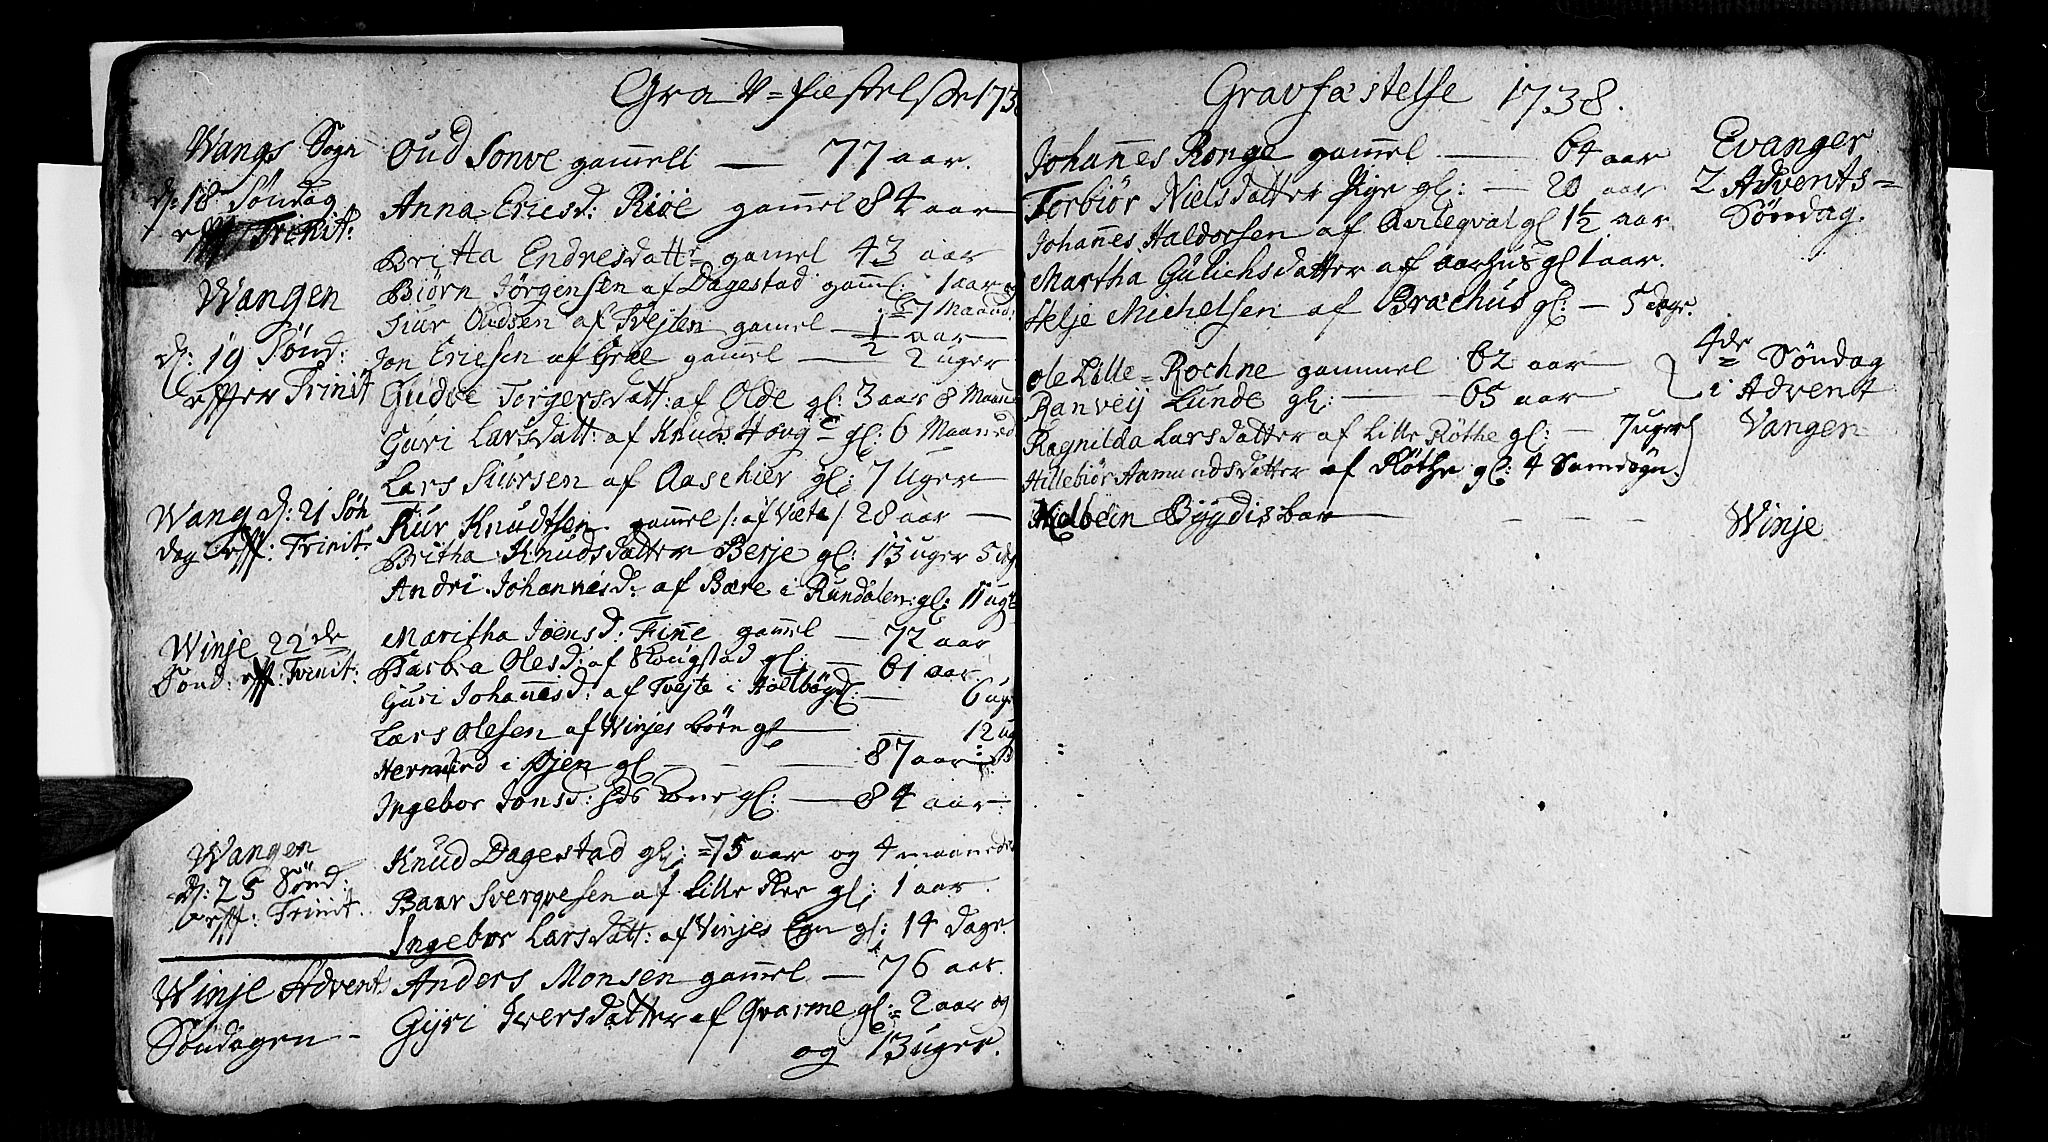 Grav=fæstelse 173
Wangs Sogn
d: 18 Søndag
eff Trinit:
Oud Sonve gammell — 77 aar.
Anna Ericsd: Riise gammel 84 aar
Britta Endresdattr gammel 43 aar
Wangen
d: 19 Sønd:
effter Trinit
Biørn Jørgensen af Dagestad gamel: 1 aar og
7 Maand:
Siur Oudsen af Tvejten gamel — 1/2 aar
Jon Ericsen af Græe gammel — 2 uger
Gudve Torgersdatt: af Olde gl: 3 aar 8 Maand
Guri Larsdatt: af Knuds Houg gl: 6 Maaned
Lars Siursen af Aaschier gl: 7 Uger
Wang d: 21 Søn
dag eff: Trinit:
Siur Knudtsen gammel /: af Væte / 28 aar —
Britha Knudsdatter Berje gl: 13 uger 5 dag
Andri Johannesd: af Bære i Rundalen: gl: 11 ug
Winje 22de
Sønd: eff: Trinit:
Maritha Joensd: Finne gammel — 72 aar
Barbra Olesd: af Rougstad gl: — 61 aar.
Guri Johannesd: af Tvejte i Holbøygd: — 6 uge
Lars Olesen af Winjes Børn gl — 12 ug
Hermund i Øjen gl — 87 aar
Ingebor Jonsd: gl: — 84 aar
Wangen
d: 25 Sønd:
eff: Trinit.
Knud Dagestad gl: = 75 aar og 4 maaneder
Baar Sverquesen af Lille Ree gl: 1 aar.
Ingebor Larsdatt: af Vinjes Egn gl: 14 dage.
Winje Advents
Søndagen —
Anders Monsen gammel — 76 aar.
Gyri Iversdatter af Qvarme gl: 2 aar og
og 13 uger.
Gravfæstelse 1738.
Johannes Ronge gammel — 64 aar
Torbiør Nielsdatter Pige gl: — 20 aar
Johannes Haldorsen af Qvileqval gl 1½ aar
Martha Gulichsdatter af Aarhus gl 1 aar.
Helje Michelsen af Brachus gl: — 5 dage.
Evanger
2 Advents=
Søndag.
Ole Lille=Rochne gammel 62 aar
Ranveij Lunde gl: — 65 aar
Ragnilda Larsdatter af Lille Røthe gl: — 7 uger
Hillebiør Aamundsdatter af Røthe gl: 4 Samdøgn.
4de Søndag
i Advent
Vangen
Kolbein Bygdisbar — — —
Winje